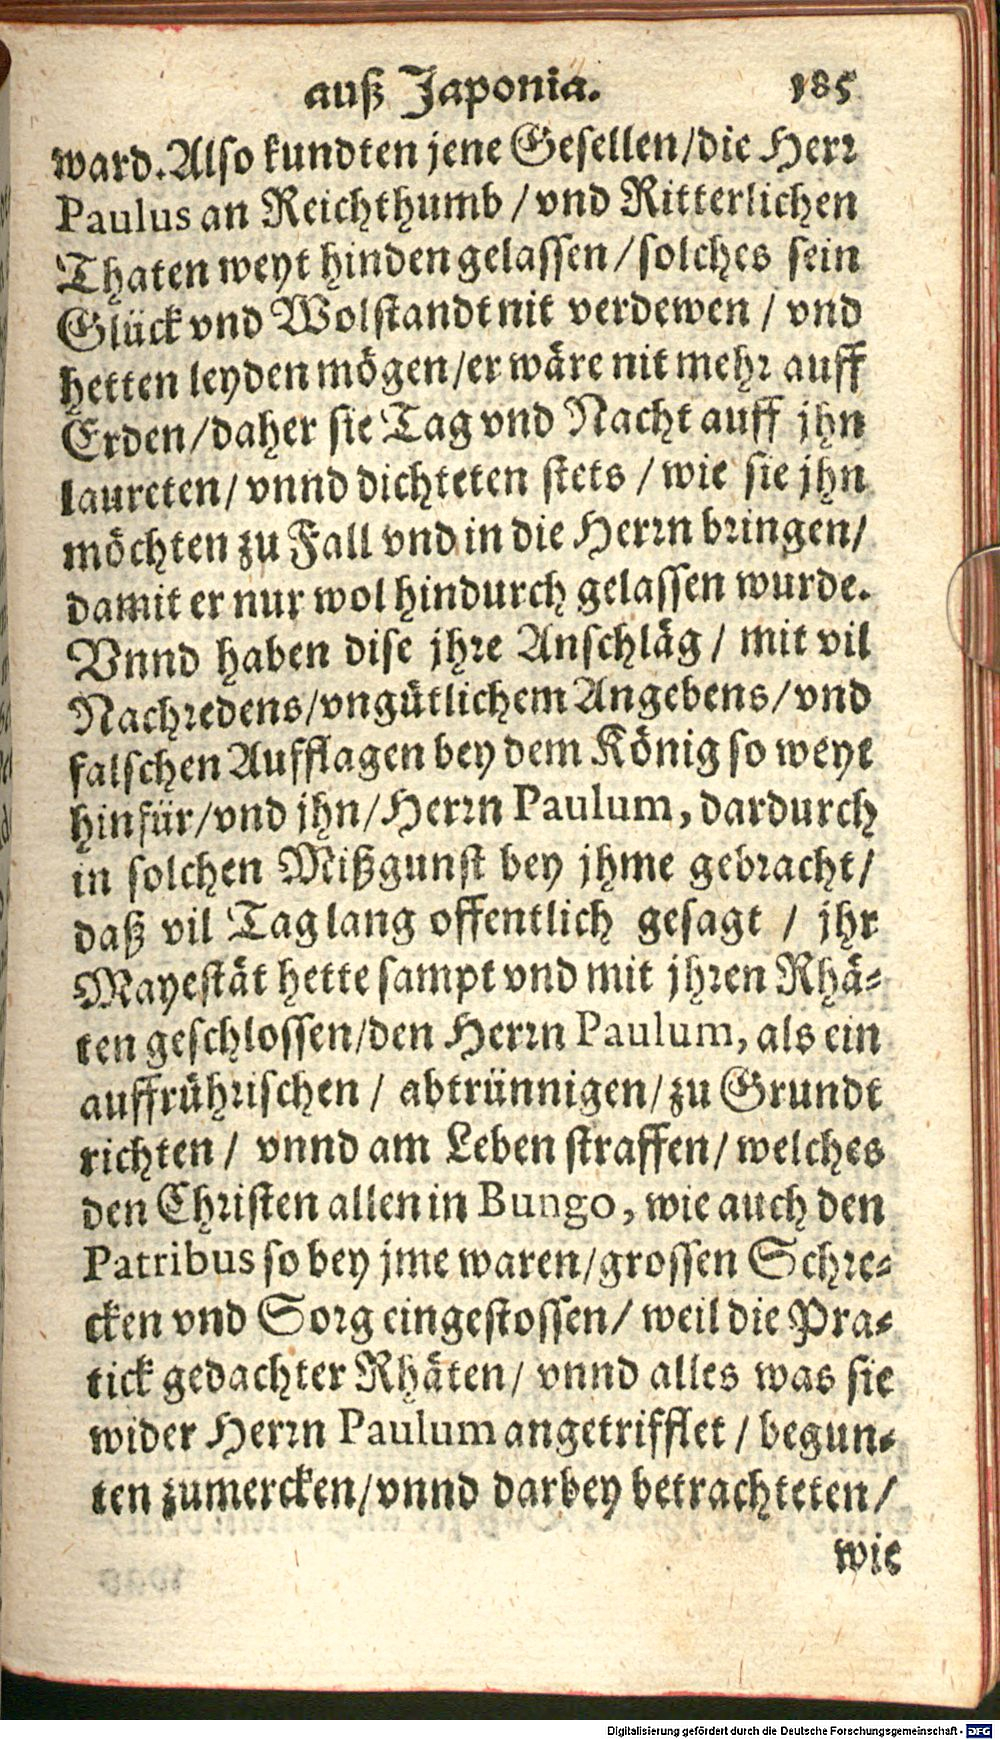 auß Japonia. 185
ward. Also kundten jene Gesellen/die Herr
Paulus an Reichthumb / vnd Ritterlichen
Thaten weyt hinden gelassen / solches sein
Glück vnd Wolstandt nit verdewen / vnd
hetten leyden mögen/er wäre nit mehr auff
Erden/daher sie Tag vnd Nacht auff jhn
laureten/ vnnd dichteten stets / wie sie jhn
möchten zu Fall vnd in die Herrn bringen/
damit er nur wol hindurch gelassen wurde.
Vnnd haben dise jhre Anschläg / mit vil
Nachredens/vngütlichem Angebens/vnd
falschen Aufflagen bey dem König so weyt
hinfür/vnd jhn/Herrn Paulum, dardurch
in solchen Mißgunst bey jhme gebracht/
daß vil Tag lang offentlich gesagt / jhr
Mayestät hette sampt vnd mit jhren Rhä-
ten geschlossen/den Herrn Paulum, als ein
auffrührischen / abtrünnigen/zu Grundt
richten / vnnd am Leben straffen/ welches
den Christen allen in Bungo, wie auch den
Patribus so bey jme waren/grossen Schre-
cken vnd Sorg eingestossen/ weil die Pra-
tick gedachter Rhäten/ vnnd alles was sie
wider Herrn Paulum angetrifflet / begun-
ten zumercken/vnnd darbey betrachteten/
wie
Digitalisierung gefördert durch die Deutsche Forschungsgemeinschaft - DFG